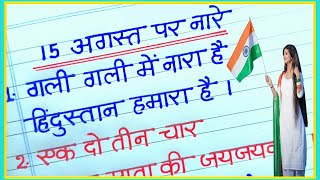 15 अगस्त पर नारे
1. गली गली में नारा है
हिंदुस्तान हमारा है ।
2. एक दो तीन चार
माता की जयजयक